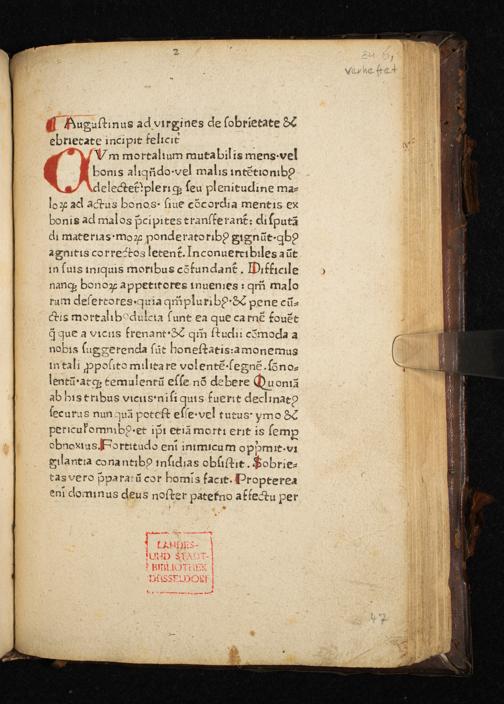 2
zu 6,
verheftet
¶ Augustinus ad virgines de sobrietate &
ebrietate incipit feliciť
QVm mortalium mutabilis mens·vel
bonis aliqn̄do·vel malis intētionibꝫ
delectet᷑:pleriqꝫ seu plenitudine ma-
loꝝ ad actus bonos· siue cōcordia mentis ex
bonis ad malos p̄cipites transferant᷑: disputā
di materias·moꝝ ponderatoribꝫ gignūt·qbꝫ
agnitis correctos letent᷑. Inconuertibiles aūt
in suis iniquis moribus cōfundant᷑. Difficile
nanqꝫ bonoꝝ appetitores inuenies : qm̄ malo
rum desertores·quia qm̄ pluribꝫ·& pene cū-
ctis mortalibꝫ dulcia sunt ea que carnē fouēt
q̄ que a viciis frenant·& qm̄ studii cōmoda a
nobis suggerenda sūt honestatis:amonemus
in tali ꝓposito militare volentē·segnē·sōno-
lentū·atqꝫ temulentū esse nō debere Quoniā
ab his tribus viciis·nisi quis fuerit declinatꝫ
securus nunquā potest esse·vel tutus· ymo &
periculꝰ omnibꝫ·et ip̄i etiā morti erit is semꝑ
obnoxius. Fortitudo eni inimicum opp̄mit·vi
gilantia conantibꝫ insidias obsistit. Sobrie-
tas vero p̄paratū cor homīs facit. Propterea
eni dominus deus noster paterno affectu per
LANDES-
UND STADT-
BIBLIOTHEK
DÜSSELDORF
47